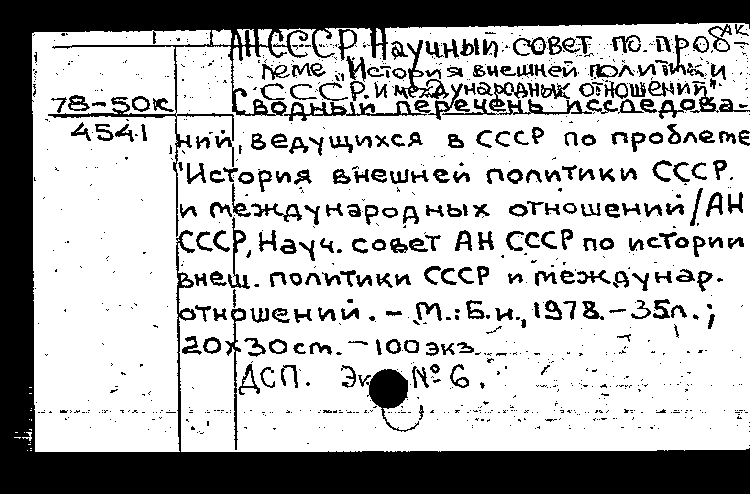 АК
АН СССР. Научный совет по проб-
леме „История внешней политики
СССР и международных отношений"
78-50к Сводный перечень исследова-
4541 ний, ведущихся в СССР по проблеме
"История внешней политики СССР.
и международных отношений/АН
СССР, Науч. совет АН СССР по истории
внеш. политики СССР и междунар.
отношений. - М.: Б.и., 1978. - 35л.;
20х30см. - 100экз.
ДСП. Эк №6.